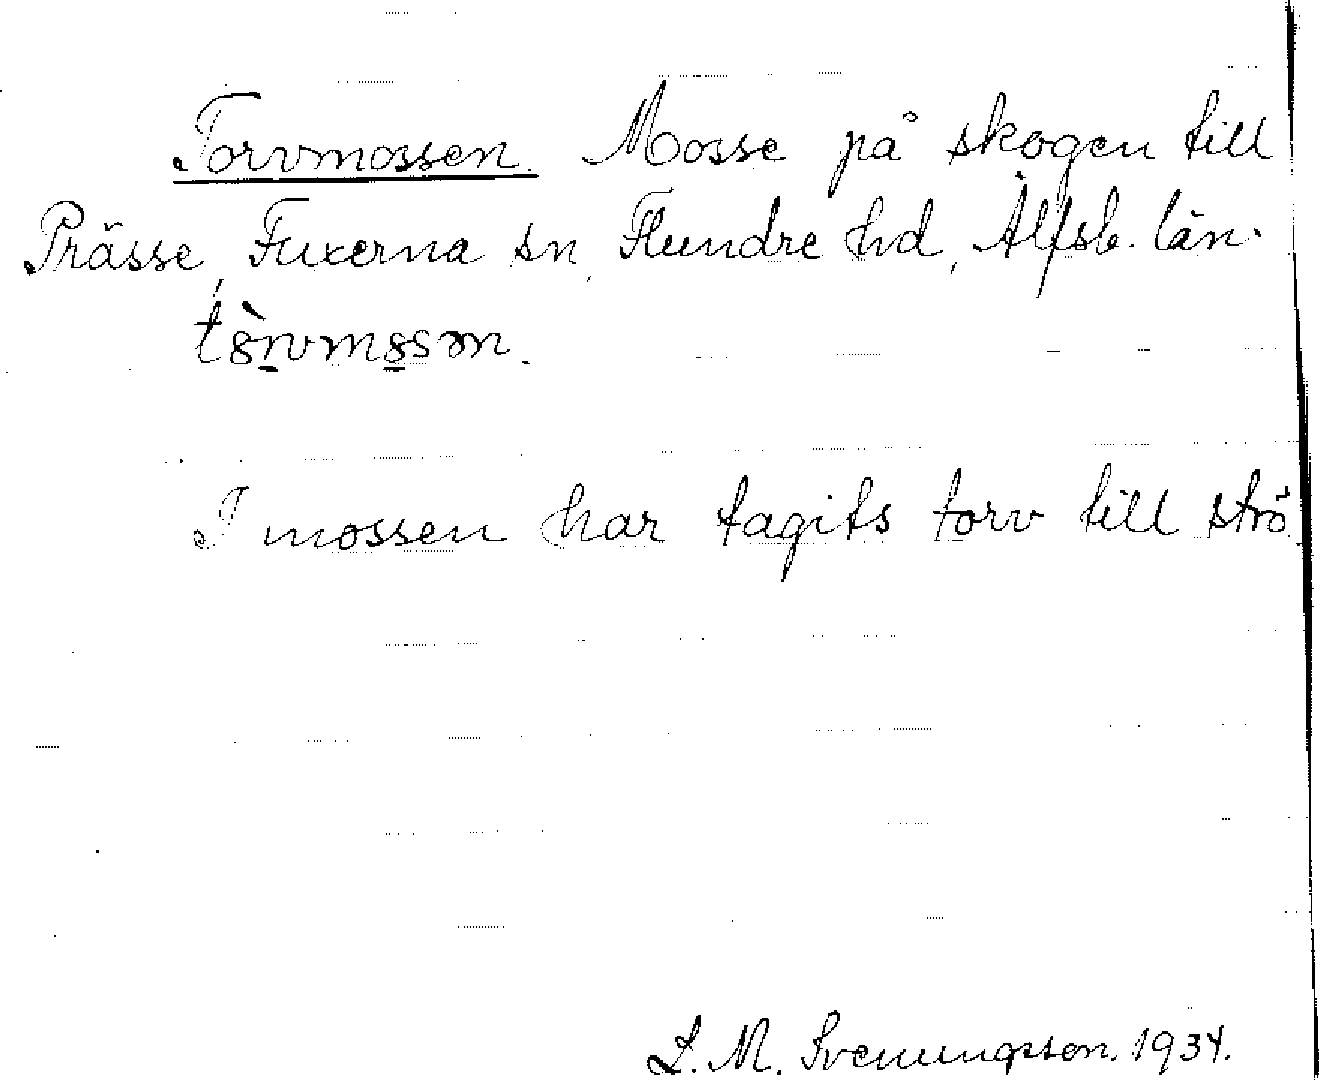 Torvmossen. Mosse på skogen till
Prässe, Fuxerna sn, Flundre hd, Älfsb. län.
I mossen har tagits torv till strö.
L. M. Svenungsson. 1934.